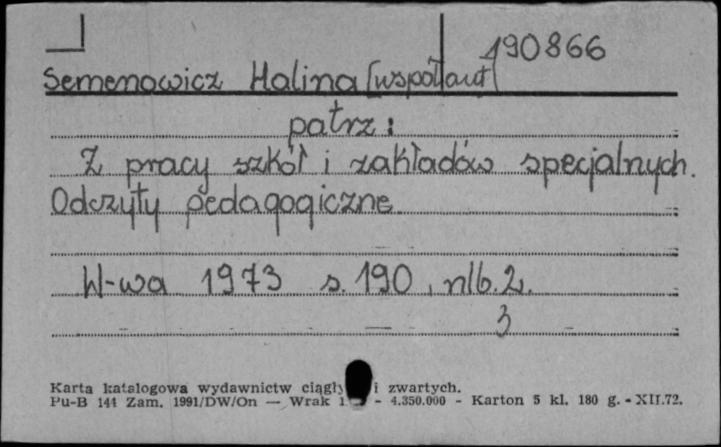 190866
Semenowicz Halina [współaut]
patrz:
Z pracy szkół i zakładów specjalnych.
Odczyty pedagogiczne.
W-wa 1973 s. 190, nlb. 2.
3
Karta katalogowa wydawnictw i zwartych.
Pu-B 144 Zam. 1991/DW/On — Wrak - 4.350.000 - Karton 5 kl. 180 g. - XII.72.